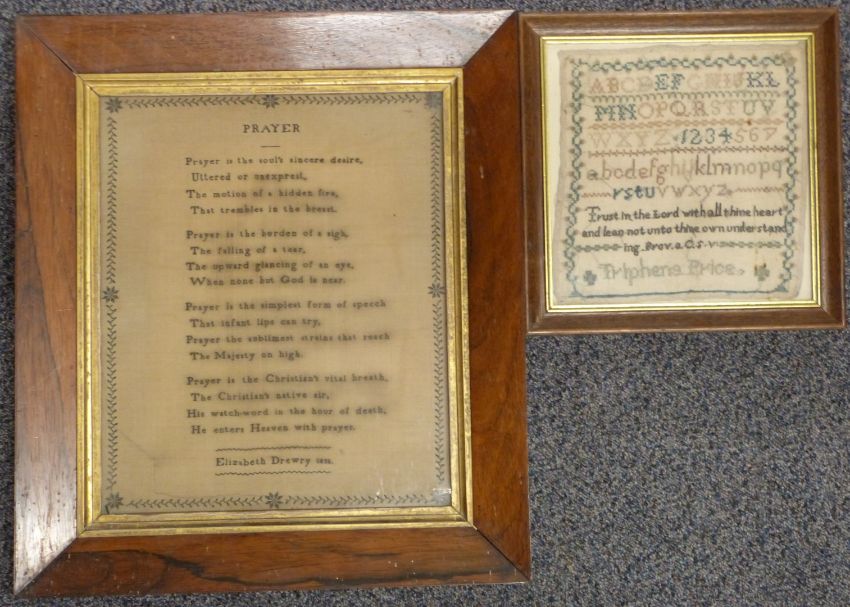 PRAYER
Prayer is the soul's sincere desire,
Uttered or unexprest,
The motion of a hidden fire,
That trembles in the breast.
Prayer is the burden of a sigh,
The falling of a tear,
The upward glancing of an eye,
When none but God is near.
Prayer is the simplest form of speech
That infant lips can try,
Prayer the sublimest strains that reach
The Majesty on high.
Prayer is the Christian's vital breath,
The Christian's native air,
His watch-word in the hour of death,
He enters Heaven with prayer.
Elizabeth Drewry
ABCDEFGHIJKL
MNOPQRSTUV
WXYZ 1234567
abcdefghijklmnopq
rstuvwxyz
Trust in the Lord with all thine heart
and lean not unto thine own understand
ing. Prov.
Triphena Price.